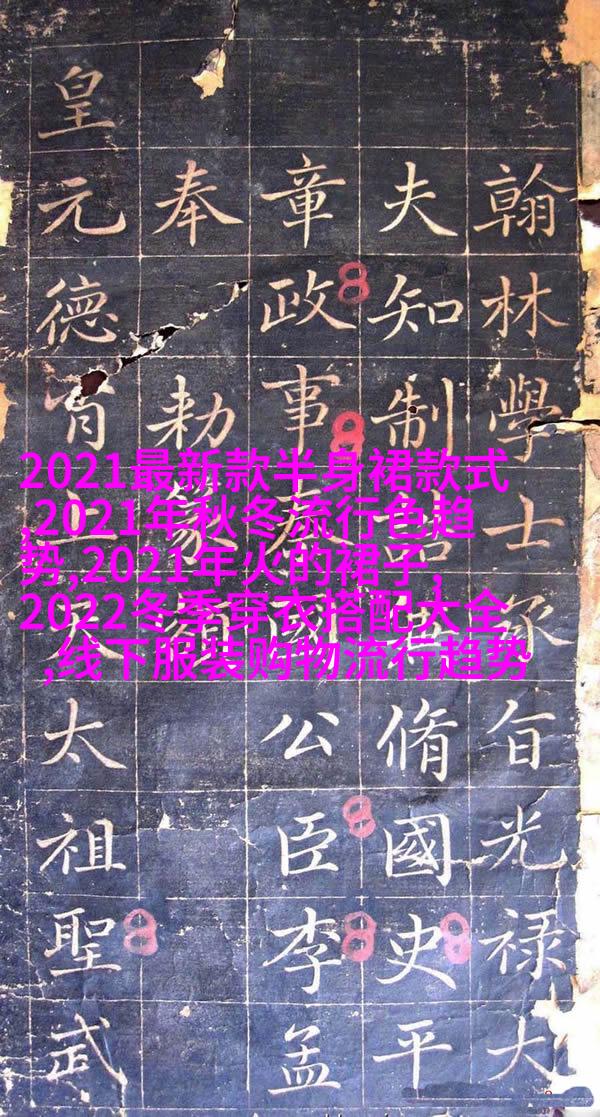 翰林學士承旨光禄大
夫知制誥脩國史平
章政事國公臣李孟
奉勅篆額
皇元德上天太祖聖武
2021最新款半身裙款式
,2021年秋冬流行色趋
势,2021年火的裙子,
2022冬季穿衣搭配大全
,线下服装购物流行趋势